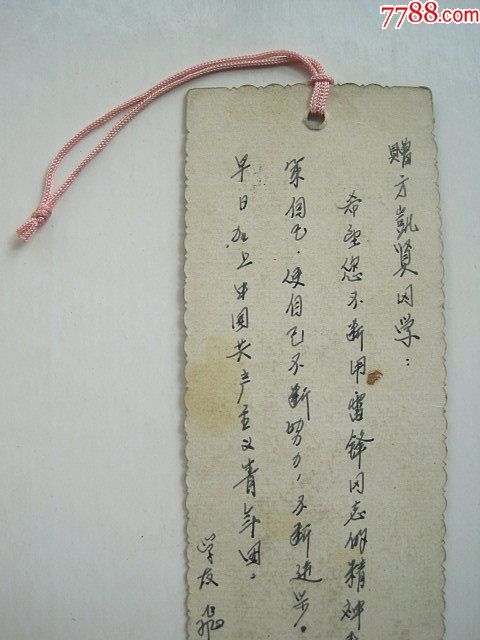 7788.com
赠方凯贤同学：
希望您不断用雷锋同志的精神
策自己，使自己不断努力，不断进步。
早日加上中国共产主义青年团。
学友